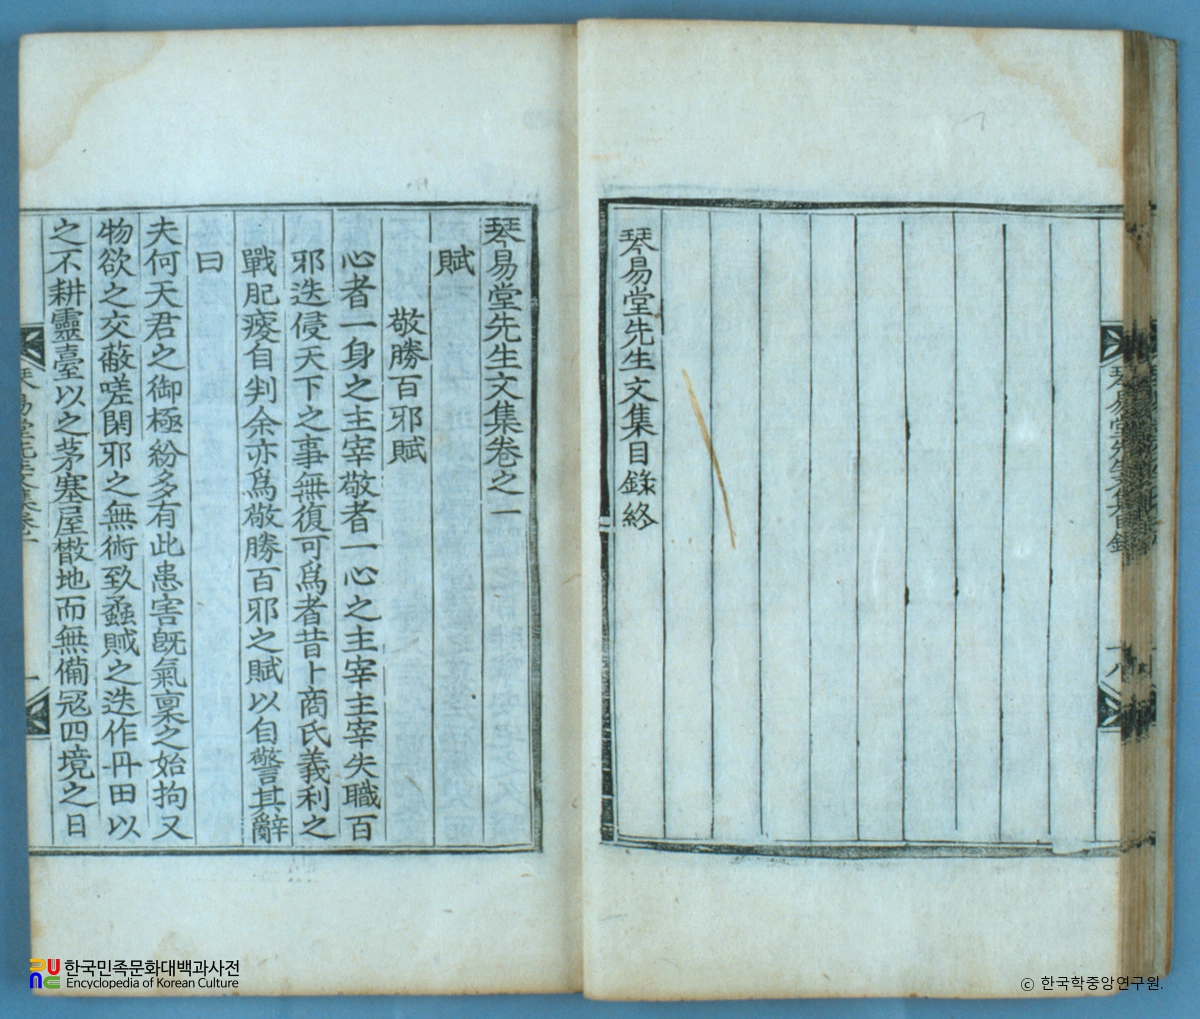 琴易堂先生文集目錄終
琴易堂先生文集卷之一
賦
敬勝百邪賦
心者一身之主宰敬者一心之主宰主宰失職百
邪迭侵天下之事無復可爲者昔卜商氏義利之
戰肥瘦自判余亦爲敬勝百邪之賦以自警其辭
曰
夫何天君之御極紛多有此患害旣氣稟之始拘又
物欲之交蔽嗟閑邪之無術致蟊賊之迭作丹田以
之不耕靈臺以之茅塞屋散地而無備冦四境之日
한국민족문화대백과사전
Encyclopedia of Korean Culture
ⓒ 한국학중앙연구원.